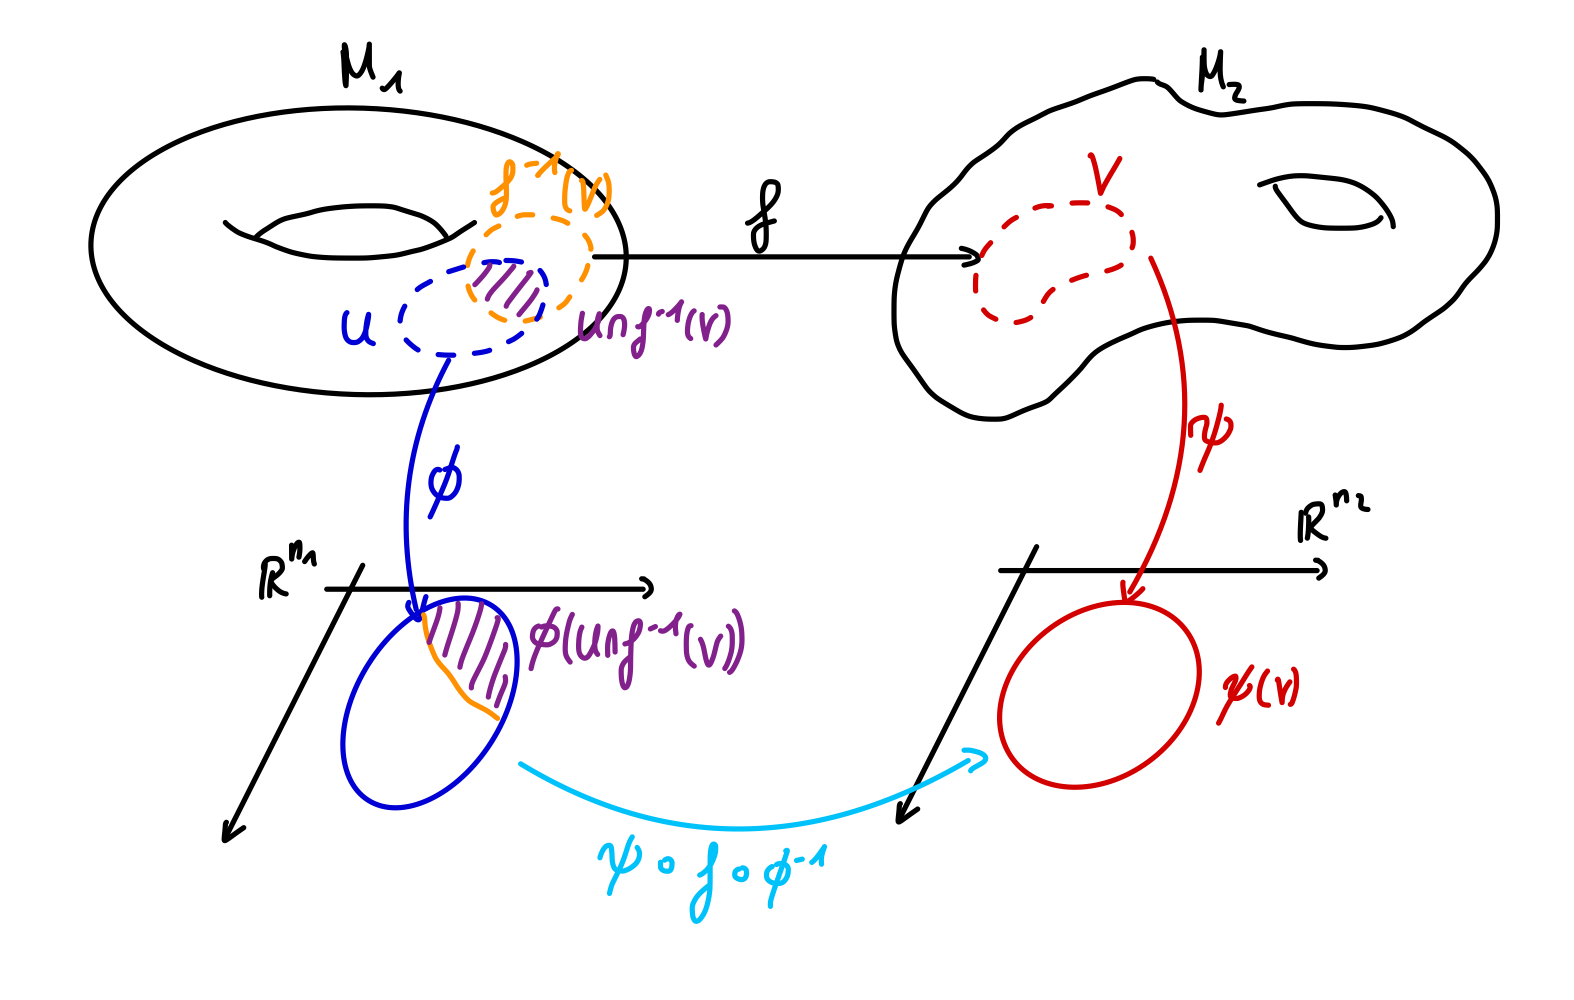 M₁
M₂
f⁻¹(V)
f
V
U
U∩f⁻¹(V)
ϕ
ψ
ℝⁿ¹
ℝⁿ²
ϕ(U∩f⁻¹(V))
ψ(V)
ψ∘f∘ϕ⁻¹